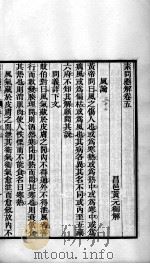 素問懸解卷五
昌邑黃元御解
風論
黃帝問曰風之傷人也或為寒熱或為熱中或為寒中或為
癘風或為偏枯或為風也其病各異其名不同或內至五藏
六府不知其解願聞其說
問義詳下文
岐伯對曰風氣藏於皮膚之間內不得通外不得泄風者善
行而數變腠理開則洒然寒閉則熱而悶其寒也則衰食飲
其熱也則消肌肉故使人怢慄而不能食名曰寒熱
風氣藏於皮膚之間